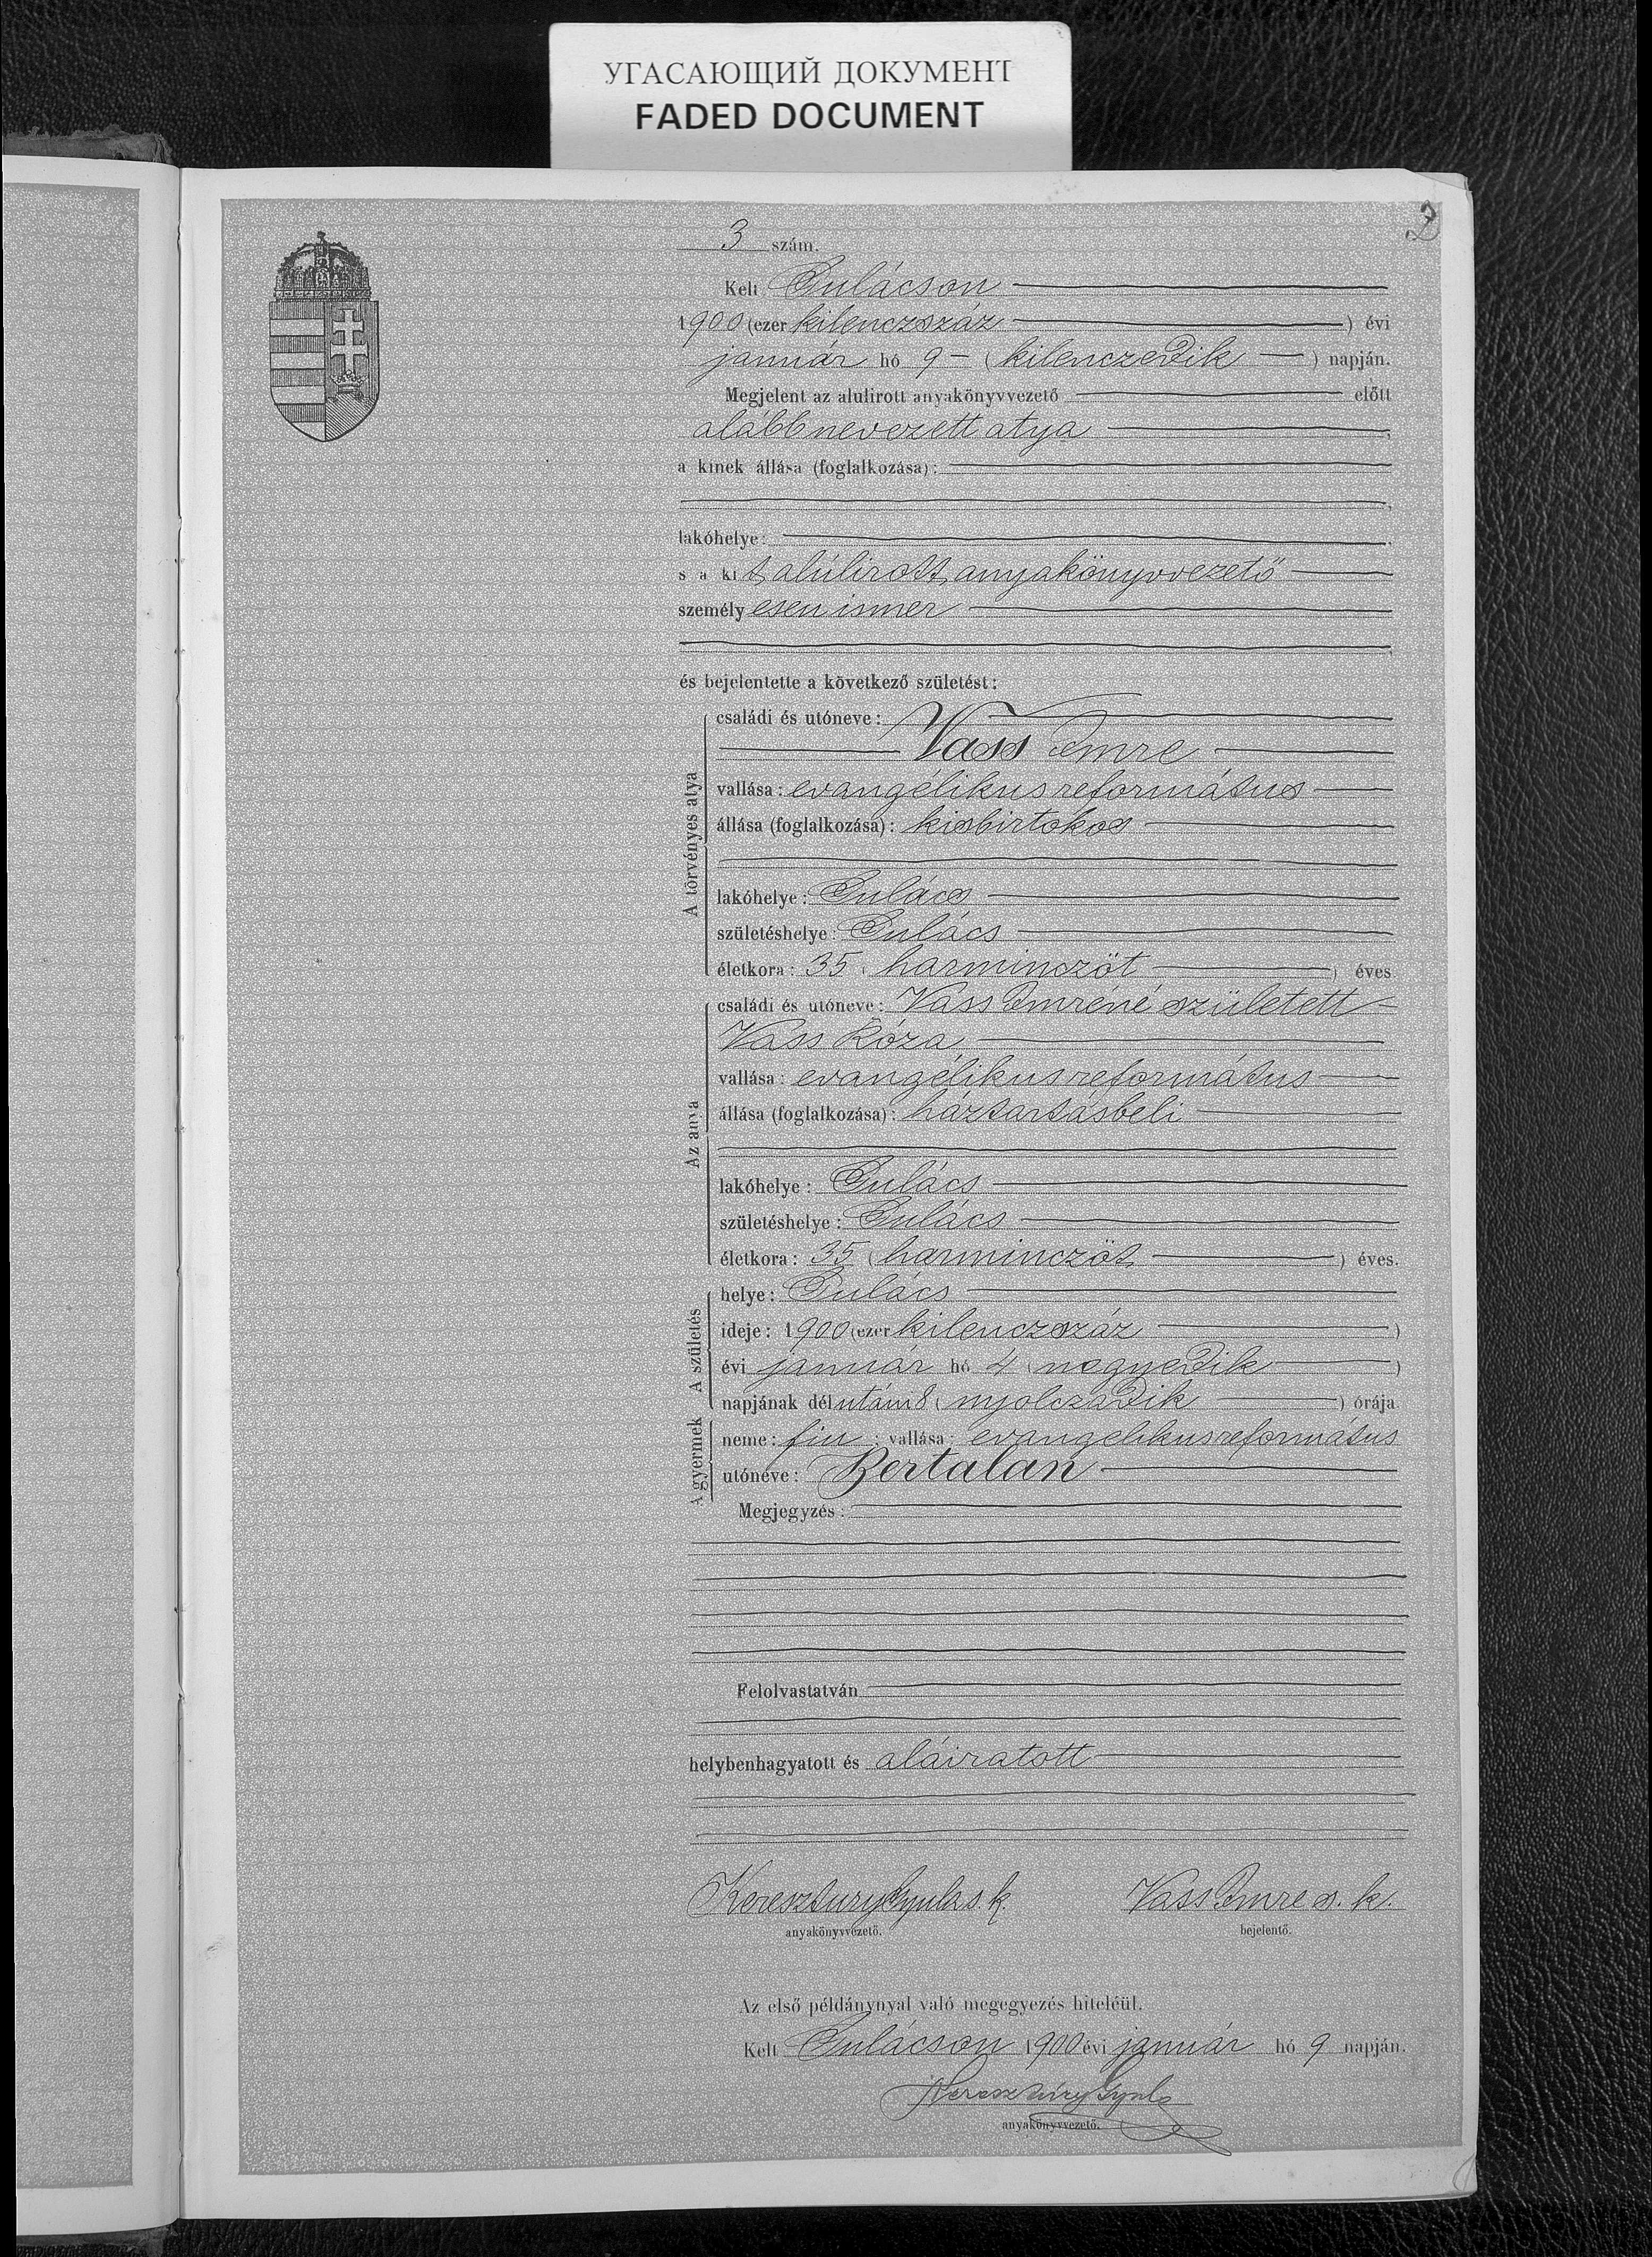 УГАСАЮЩИЙ ДОКУМЕНТ
FADED DOCUMENT
2
3 szám.
Kelt Gulácson
1900 (ezer kilenczszáz) évi
január hó 9 (kilenczedik) napján.
Megjelent az alulirott anyakönyvvezető előtt
alább nevezett atya,
a kinek állása (foglalkozása):
lakóhelye:
s a kit alúlirott anyakönyvvezető
személyesen ismer
és bejelentette a következő születést:
A törvényes atya
családi és utóneve:
Vass Imre
vallása: evangélikus református
állása (foglalkozása): kisbirtokos
lakóhelye: Gulács
születéshelye: Gulács
életkora: 35 (harminczöt) éves
Az anya
családi és utóneve: Vass Imréné született
Vass Róza
vallása: evangélikus református
állása (foglalkozása): háztartásbeli
lakóhelye: Gulács
születéshelye: Gulács
életkora: 35 (harminczöt) éves.
A születés
helye: Gulács
ideje: 1900 (ezer kilenczszáz)
évi január hó 4 (negyedik)
napjának délután 8 (nyolczadik) órája
A gyermek
neme: fiu; vallása: evangelikus református
utóneve: Bertalan
Megjegyzés:
Felolvastatván
helybenhagyatott és aláiratott
Keresztury Gyula s. k. Vass Imre s. k.
anyakönyvvezető. bejelentő.
Az első példánynyal való megegyezés hiteléül.
Kelt Gulácson 1900 évi január hó 9 napján.
Keresztúry Gyula
anyakönyvvezető.